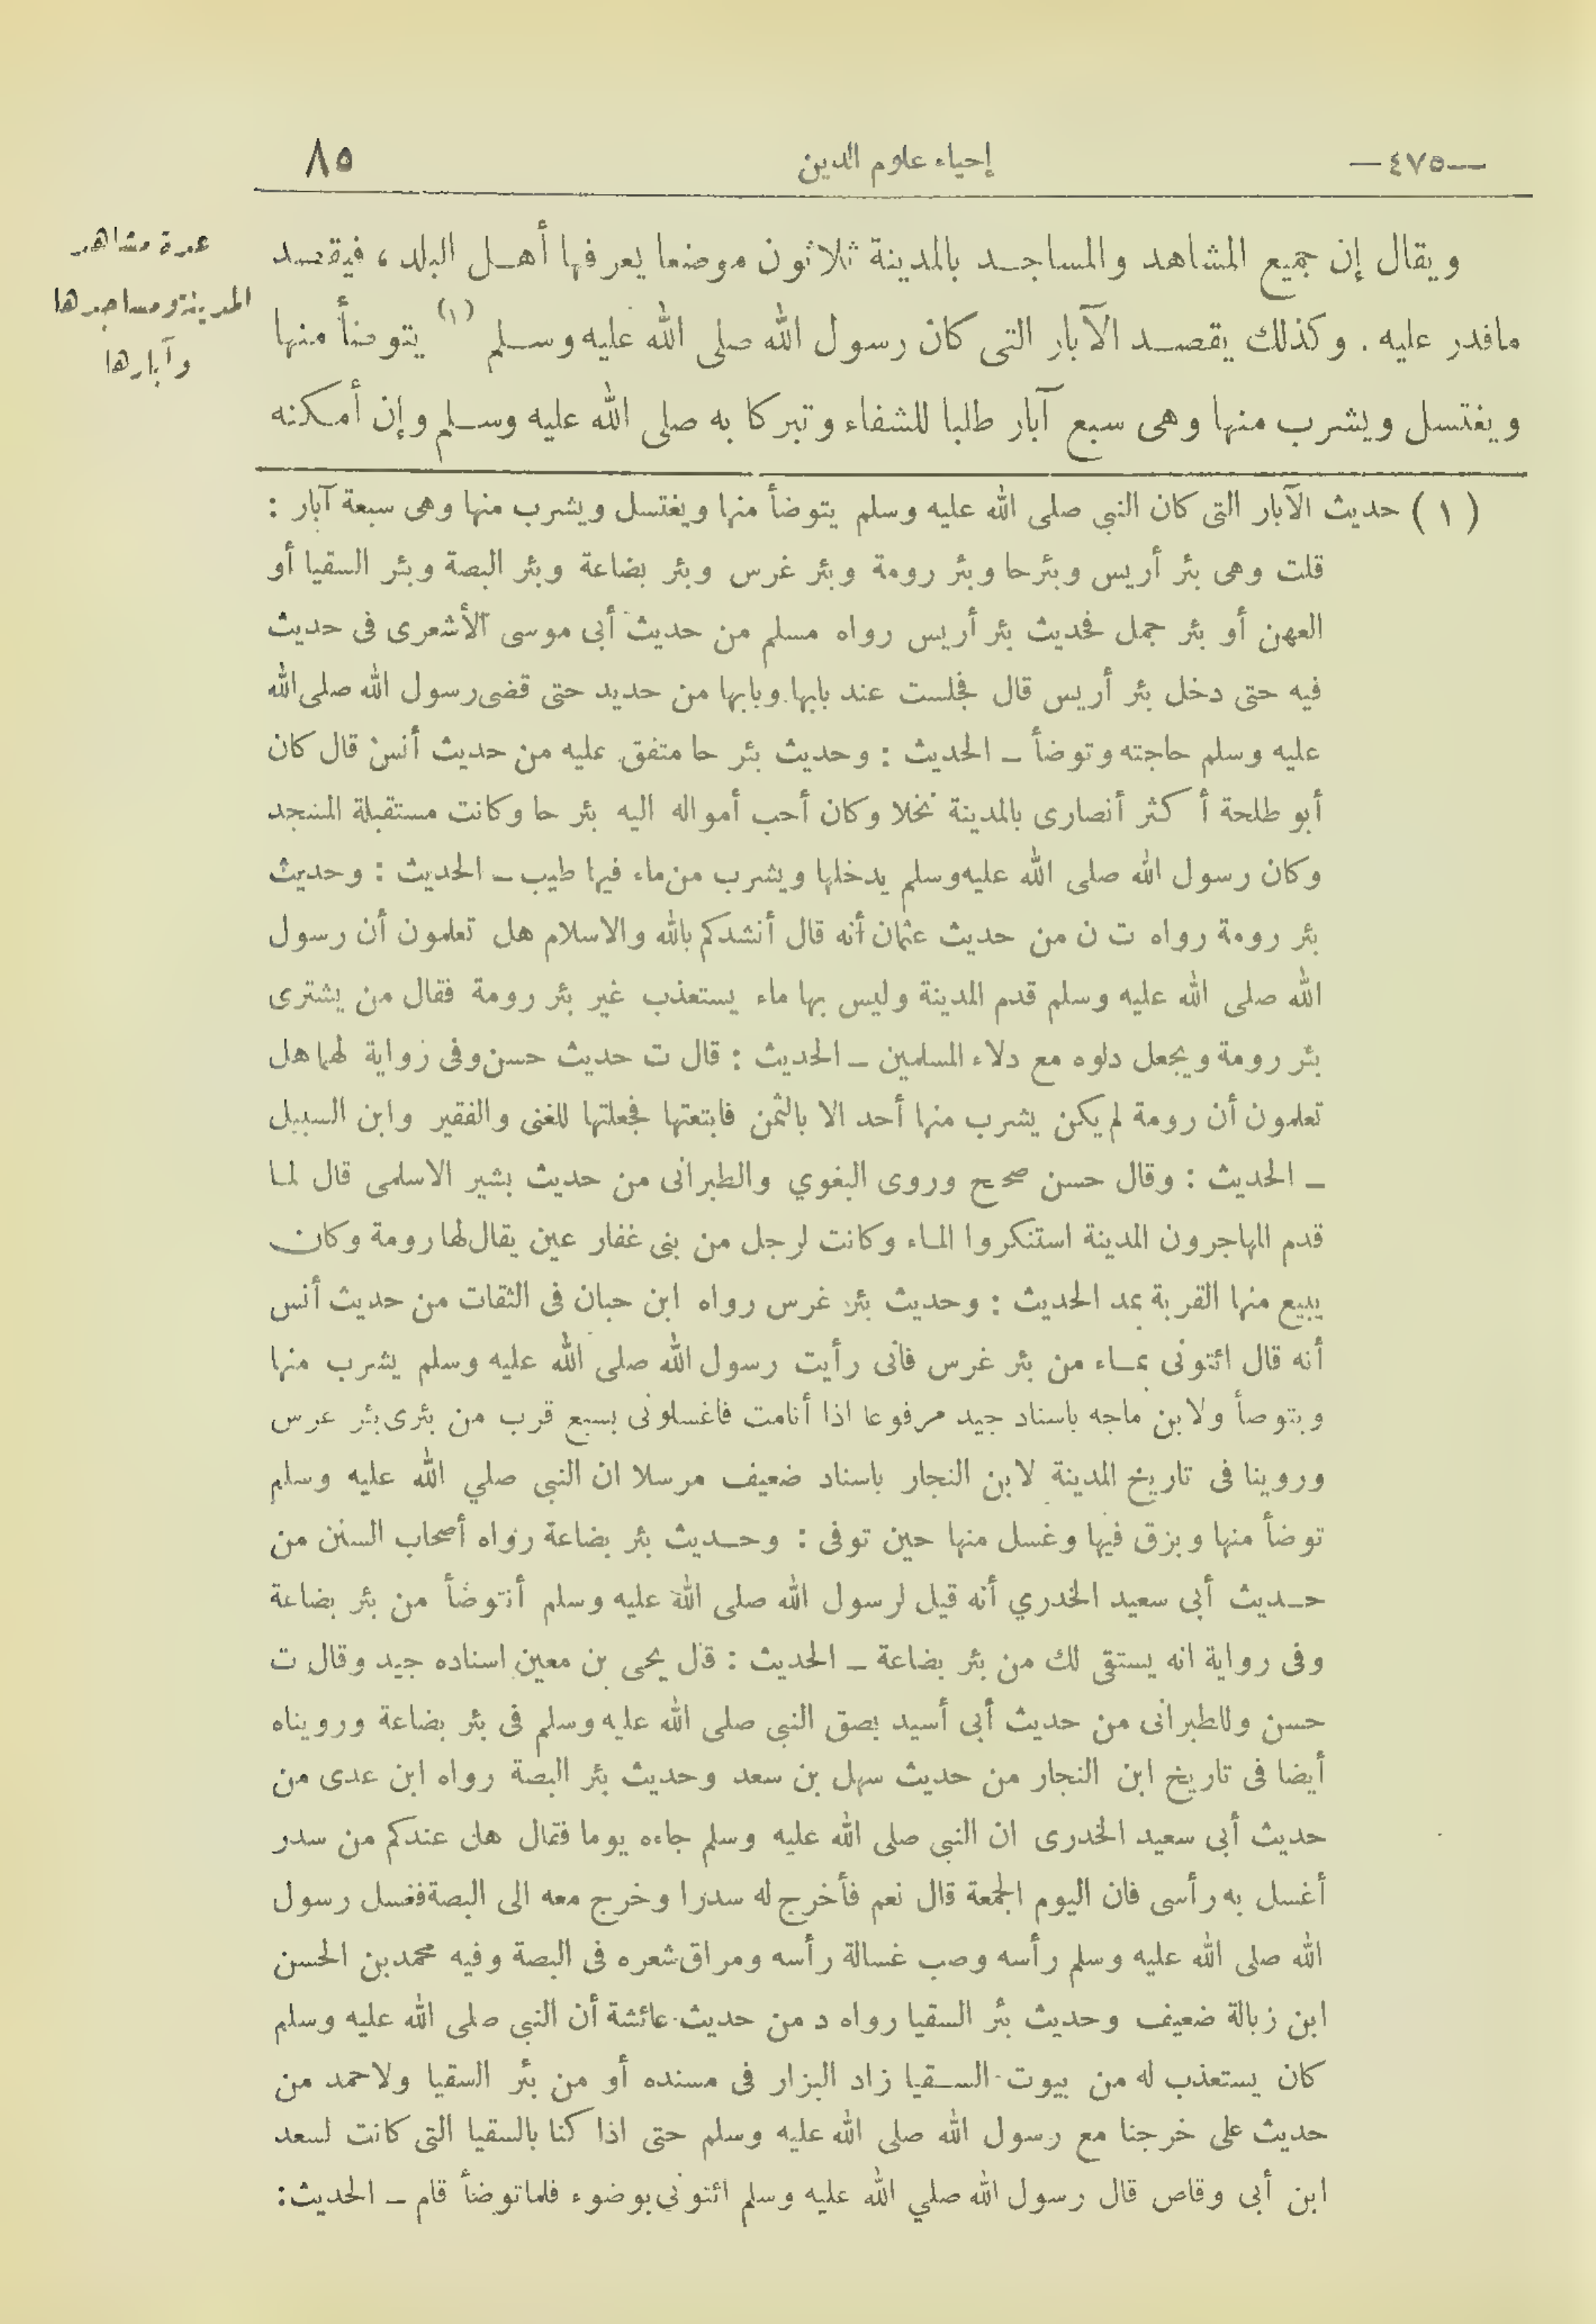 —٤٧٥—
إحياء علوم الدين
٨٥
ويقال إن جميع المشاهد والمساجد بالمدينة ثلاثون موضعا يعرفها أهل البلد ، فيقصد
ماقدر عليه . وكذلك يقصد الآبار التى كان رسول الله صلى الله عليه وسلم (١) يتوضأ منها
ويغتسل ويشرب منها وهى سبع آبار طلبا للشفاء وتبركا به صلى الله عليه وسلم وإن أمكنه
عدة مشاهد
المدينة ومساجدها
وآبارها
(١) حديث الآبار التى كان النبي صلى الله عليه وسلم يتوضأ منها ويغتسل ويشرب منها وهى سبعة آبار :
قلت وهى بئر أريس وبئرحا وبئر رومة وبئر غرس وبئر بضاعة وبئر البصة وبئر السقيا أو
العهن أو بئر جمل فحديث بئر أريس رواه مسلم من حديث أبى موسى الأشعرى فى حديث
فيه حتى دخل بئر أريس قال فجلست عند بابها وبابها من حديد حتى قضى رسول الله صلى الله
عليه وسلم حاجته وتوضأ ــ الحديث : وحديث بئر حا متفق عليه من حديث أنس قال كان
أبو طلحة أكثر أنصارى بالمدينة نخلا وكان أحب أمواله اليه بئر حا وكانت مستقبلة المسجد
وكان رسول الله صلى الله عليه وسلم يدخلها ويشرب من ماء فيها طيب ــ الحديث : وحديث
بئر رومة رواه ت ن من حديث عثمان أنه قال أنشدكم بالله والاسلام هل تعلمون أن رسول
الله صلى الله عليه وسلم قدم المدينة وليس بها ماء يستعذب غير بئر رومة فقال من يشترى
بئر رومة ويجعل دلوه مع دلاء المسلمين ــ الحديث : قال ت حديث حسن وفى رواية لهما هل
تعلمون أن رومة لم يكن يشرب منها أحد الا بالثمن فابتعتها فجعلتها للغنى والفقير وابن السبيل
ــ الحديث : وقال حسن صحيح وروى البغوي والطبرانى من حديث بشير الاسلمى قال لما
قدم المهاجرون المدينة استنكروا الماء وكانت لرجل من بنى غفار عين يقال لها رومة وكان
يبيع منها القربة بمد الحديث : وحديث بئر غرس رواه ابن حبان فى الثقات من حديث أنس
أنه قال ائتونى بماء من بئر غرس فانى رأيت رسول الله صلى الله عليه وسلم يشرب منها
ويتوضأ ولابن ماجه باسناد جيد مرفوعا اذا أنامت فاغسلونى بسبع قرب من بئرى بئر غرس
وروينا فى تاريخ المدينة لابن النجار باسناد ضعيف مرسلا ان النبى صلي الله عليه وسلم
توضأ منها وبزق فيها وغسل منها حين توفى : وحديث بئر بضاعة رواه أصحاب السنن من
حديث أبى سعيد الخدري أنه قيل لرسول الله صلى الله عليه وسلم أنتوضأ من بئر بضاعة
وفى رواية انه يستقى لك من بئر بضاعة ــ الحديث : قال يحى بن معين اسناده جيد وقال ت
حسن وللطبرانى من حديث أبى أسيد بصق النبى صلى الله عليه وسلم فى بئر بضاعة ورويناه
أيضا فى تاريخ ابن النجار من حديث سهل بن سعد وحديث بئر البصة رواه ابن عدى من
حديث أبى سعيد الخدرى ان النبي صلى الله عليه وسلم جاءه يوما فقال هل عندكم من سدر
أغسل به رأسى فان اليوم الجمعة قال نعم فأخرج له سدرا وخرج معه الى البصة فغسل رسول
الله صلى الله عليه وسلم رأسه وصب غسالة رأسه ومراق شعره فى البصة وفيه محمد بن الحسن
ابن زبالة ضعيف وحديث بئر السقيا رواه د من حديث عائشة أن النبي صلى الله عليه وسلم
كان يستعذب له من بيوت السقيا زاد البزار فى مسنده أو من بئر السقيا ولاحمد من
حديث على خرجنا مع رسول الله صلى الله عليه وسلم حتى اذا كنا بالسقيا التى كانت لسعد
ابن أبى وقاص قال رسول الله صلي الله عليه وسلم ائتونى بوضوء فلما توضأ قام ــ الحديث :